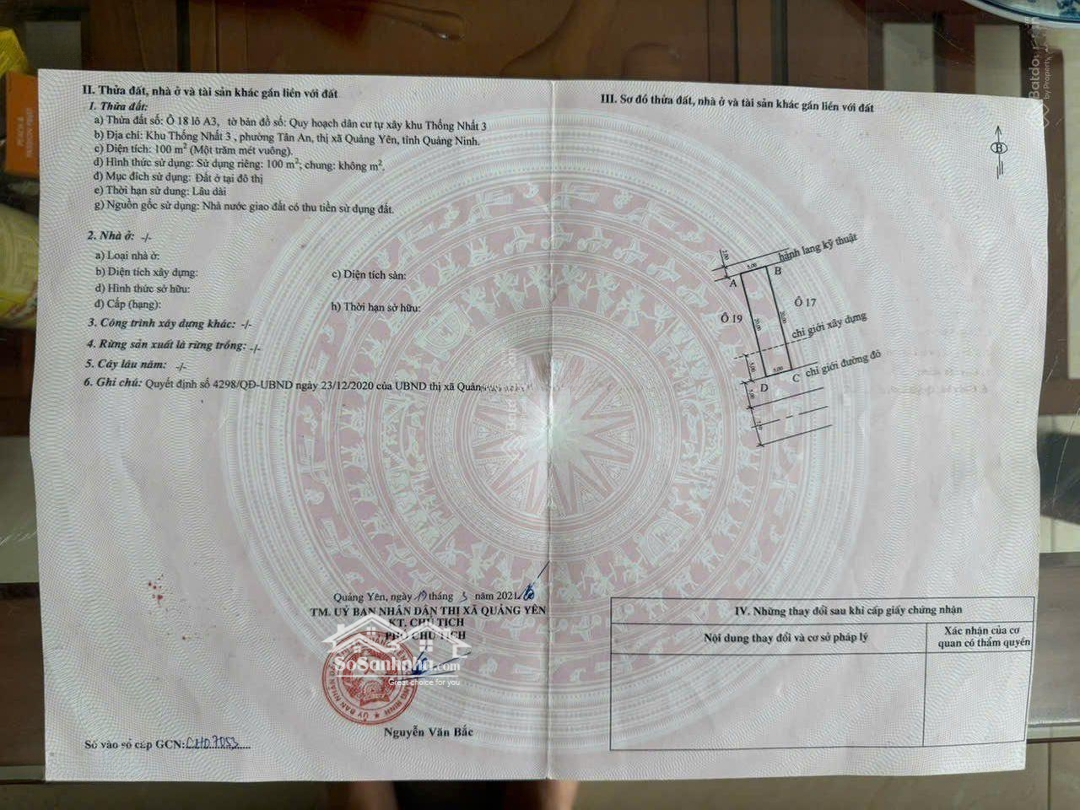 II. Thửa đất, nhà ở và tài sản khác gắn liền với đất
1. Thửa đất:
a) Thửa đất số: Ô 18 lô A3, tờ bản đồ số: Quy hoạch dân cư tự xây khu Thống Nhất 3
b) Địa chỉ: Khu Thống Nhất 3 , phường Tân An, thị xã Quảng Yên, tỉnh Quảng Ninh.
c) Diện tích: 100 m² (Một trăm mét vuông).
d) Hình thức sử dụng: Sử dụng riêng: 100 m²; chung: không m².
đ) Mục đích sử dụng: Đất ở tại đô thị
e) Thời hạn sử dung: Lâu dài
g) Nguồn gốc sử dụng: Nhà nước giao đất có thu tiền sử dụng đất.
2. Nhà ở: -/-
a) Loại nhà ở:
b) Diện tích xây dựng:
c) Diện tích sàn:
d) Hình thức sở hữu:
đ) Cấp (hạng):
h) Thời hạn sở hữu:
3. Công trình xây dựng khác: -/-
4. Rừng sản xuất là rừng trồng: -/-
5. Cây lâu năm: -/-
6. Ghi chú: Quyết định số 4298/QĐ-UBND ngày 23/12/2020 của UBND thị xã Quảng
Quảng Yên, ngày 19 tháng 3 năm 2021
TM. UỶ BAN NHÂN DÂN THỊ XÃ QUẢNG YÊN
KT. CHỦ TỊCH
PHÓ CHỦ TỊCH
SoSanhnha.com
Great choice for you
Nguyễn Văn Bắc
Số vào sổ cấp GCN: CH07053
III. Sơ đồ thửa đất, nhà ở và tài sản khác gắn liền với đất
B
hành lang kỹ thuật
2,00
5,00
A
B
Ô 17
Ô 19
20,00
20,00
chỉ giới xây dựng
chỉ giới đường đỏ
5,00
D
C
IV. Những thay đổi sau khi cấp giấy chứng nhận
Nội dung thay đổi và cơ sở pháp lý
Xác nhận của cơ
quan có thẩm quyền
Batdongsan
by Property